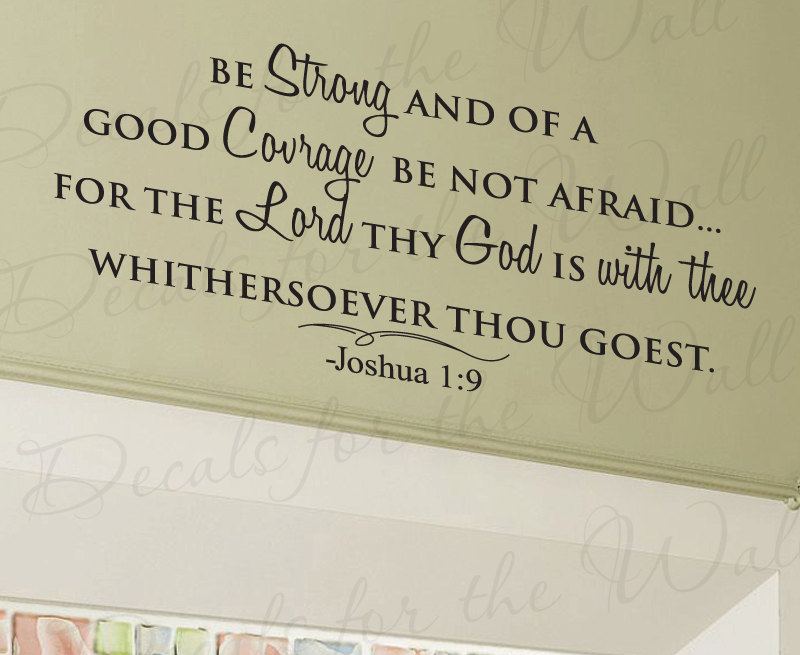 BE Strong AND OF A
GOOD Courage BE NOT AFRAID...
FOR THE Lord THY God IS with thee
WHITHERSOEVER THOU GOEST.
-Joshua 1:9
Decals for the Wall
Decals for the Wall
Decals for the Wall
Decals for the Wall
Decals for the Wall